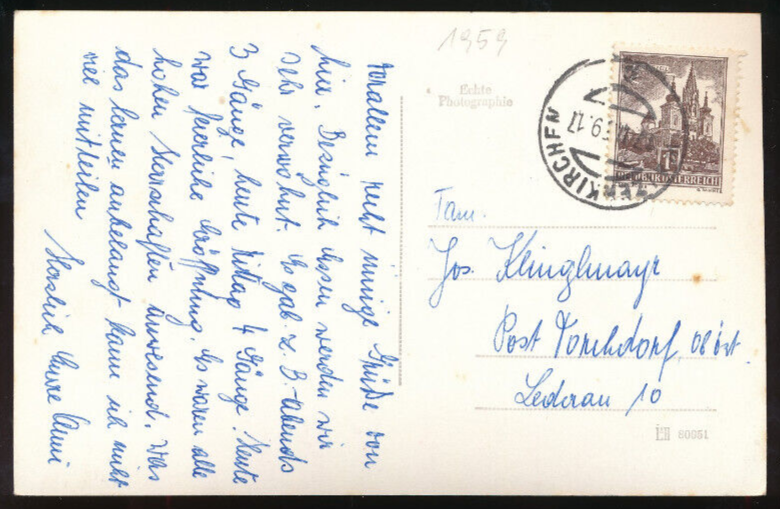 1959
Echte
Photographie
REPUBLIK ÖSTERREICH
KIRCHEN
9.17
Fam.
Jos. Klinglmayr
Post Vorchdorf, Ob. öst.
Lederau 10
80651
Vorallem recht innige Grüße von
hier. Bezüglich Essen werden wir
sehr verwöhnt. Es gab z. B. Abends
3 Gänge, heute Mittag 4 Gänge. Heute
war feierliche Eröffnung. Es waren alle
hohen Herrschaften anwesend. Was
das lernen anbelangt kann ich nicht
viel mitteilen Herzlich Eure Anni